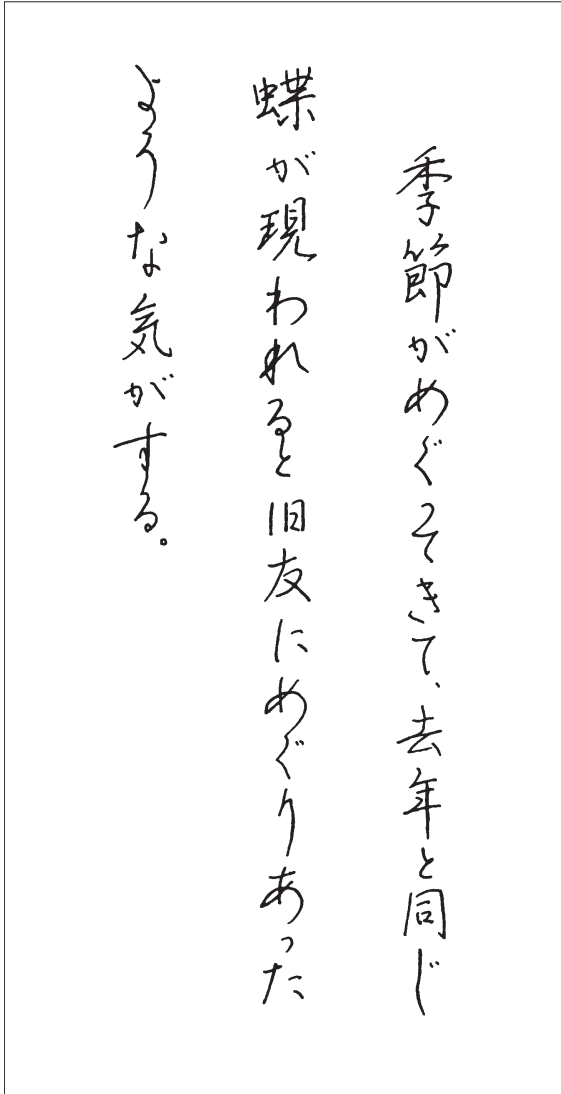 季節がめぐってきて、去年と同じ
蝶が現われると旧友にめぐりあった
ような気がする。